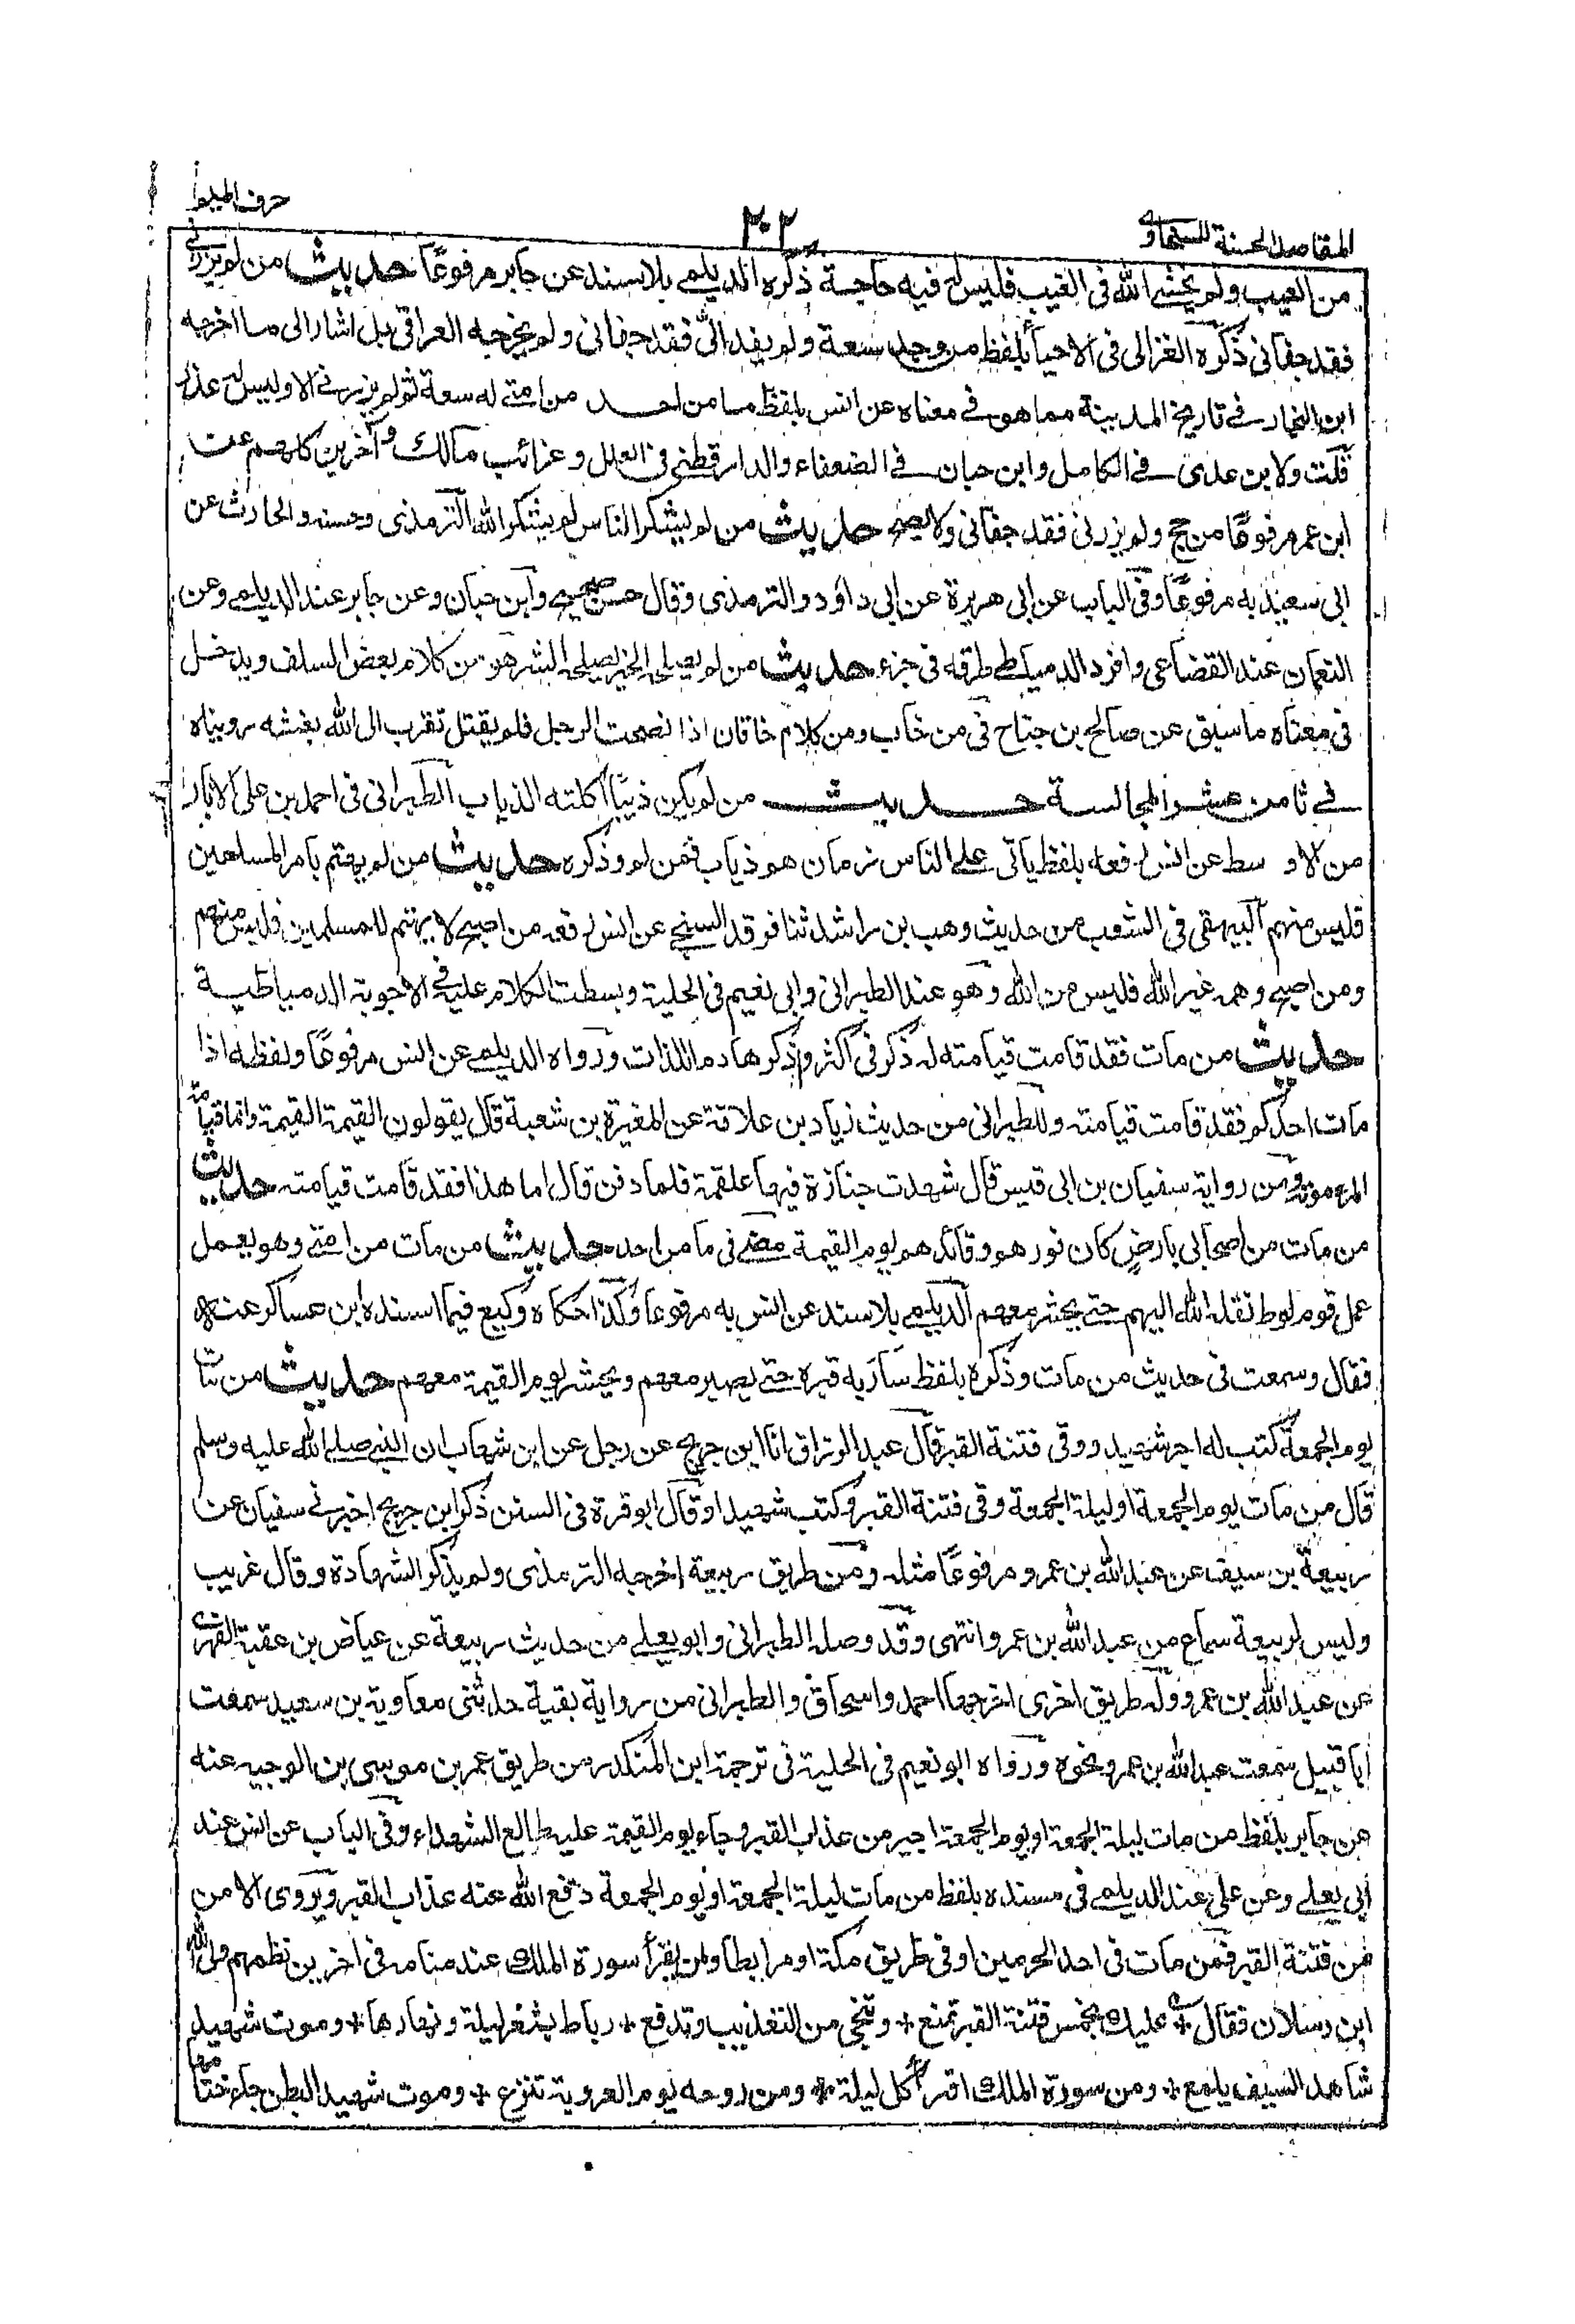 المقاصد الحسنة للسخاوي
٢٠٢
حرف الميم
من العيب ولم يخش الله في الغيب فليس لله فيه حاجة ذكره الديلمي بلا سند عن جابر مرفوعًا حديث من لم يزرني
فقد جفاني ذكره الغزالي في الاحياء بلفظ من وجد سعة ولم يفد الىّ فقد جفاني ولم يخرجه العراقي بل اشار الى ما اخرجه
ابن النجار في تاريخ المدينة مما هو في معناه عن انس بلفظ ما من احد من امتي له سعة ثم لم يزرني الا وليس له عذر
قلت ولابن عدي في الكامل وابن حبان في الضعفاء والدارقطني في العلل وغرائب مالك وآخرين كلهم عن
ابن عمر مرفوعًا من حج ولم يزرني فقد جفاني ولا يصح حديث من لم يشكر الناس لم يشكر الله الترمذي وحسنه والحارث عن
ابي سعيد به مرفوعًا وفي الباب عن ابي هريرة عن ابي داؤد والترمذي وقال حسن صحيح وابن حبان وعن جابر عند الديلمي وعن
النعمان عند القضاعي وافرد الدمياطي طرقه في جزء حديث من لم يصلحه الخير يصلحه الشر هو من كلام بعض السلف ويدخل
في معناه ما سيق عن صالح بن جناح في من خاب ومن كلام خاقان اذا نصحت الرجل فلم يقبل تقرب الى الله بغشه رويناه
في ثامن عشر المجالسة حديث من لم يكن ذيبًا اكلته الذياب الطبراني في احمد بن علي الابار
من الاوسط عن انس رفعه بلفظ ياتي على الناس زمان هم ذياب فمن لم وذكره حديث من لم يهتم بامر المسلمين
فليس منهم البيهقي في الشعب من حديث وهب بن راشد ثنا فرقد السبخي عن انس رفعه من اصبح لا يهتم للمسلمين فليس منهم
ومن اصبح وهمه غير الله فليس من الله وهو عند الطبراني وابي نعيم في الحلية وبسطت الكلام عليه في الاجوبة الدمياطية
حديث من مات فقد قامت قيامته له ذكر في اكثروا ذكر هادم اللذات ورواه الديلمي عن انس مرفوعًا ولفظه اذا
مات احدكم فقد قامت قيامته وللطبراني من حديث زياد بن علاقة عن المغيرة بن شعبة قال يقولون القيمة القيمة وانما قيامة
المرء موته ومن رواية سفيان بن ابي قيس قال شهدت جنازة فيها علقمة فلما دفن قال اما هذا فقد قامت قيامته حديث
من مات من اصحابي بارض كان نورهم وقائدهم يوم القيمة مضى في ما من احد حديث من مات من امتي وهو يعمل
عمل قوم لوط نقله الله اليهم حتى يحشر معهم الديلمي بلا سند عن انس به مرفوعا وكذا حكاه وكيع فيما اسنده ابن عساكر عنه
فقال وسمعت في حديث من مات وذكره بلفظ سار به قبره حتى يصير معهم ويحشر يوم القيمة معهم حديث من مات
يوم الجمعة كتب له اجر شهيد ووقي فتنة القبر قال عبد الرزاق انا ابن جريج عن رجل عن ابن شهاب ان النبي صلى الله عليه وسلم
قال من مات يوم الجمعة او ليلة الجمعة وقي فتنة القبر وكتب شهيدا وقال ابو قرة في السنن ذكر ابن جريج اخبرني سفيان عن
ربيعة بن سيف عن عبد الله بن عمرو مرفوعًا مثله ومن طريق ربيعة اخرجه الترمذي ولم يذكر الشهادة وقال غريب
وليس لربيعة سماع من عبد الله بن عمرو انتهى وقد وصله الطبراني وابو يعلى من حديث ربيعة عن عياض بن عقبة الفهري
عن عبد الله بن عمرو وله طريق اخرى اخرجها احمد واسحاق والطبراني من رواية بقية حدثني معاوية بن سعيد سمعت
ابا قبيل سمعت عبد الله بن عمرو بنحوه ورواه ابو نعيم في الحلية في ترجمة ابن المنكدر من طريق عمر بن موسى بن الوجيه عنه
عن جابر بلفظ من مات ليلة الجمعة او يوم الجمعة اجير من عذاب القبر وجاء يوم القيمة عليه طابع الشهداء وفي الباب عن انس عند
ابي يعلى وعن علي عند الديلمي في مسنده بلفظ من مات ليلة الجمعة او يوم الجمعة دفع الله عنه عذاب القبر ويروى الامن
من فتنة القبر فمن مات في احد الحرمين او في طريق مكة او مرابطا ولمن يقرأ سورة الملك عند منامه في اخرين نظمهم ولي الله
ابن رسلان فقال * عليك بخمس فتنة القبر تمنع * وتنجي من التعذيب وتدفع * رباط بثغر ليلة ونهارها * وموت شهيد
شاهد السيف يلمع * ومن سورة الملك اقترأ كل ليلة * ومن روحه يوم العروبة تنزع * وموت شهيد البطن جاء ختامها